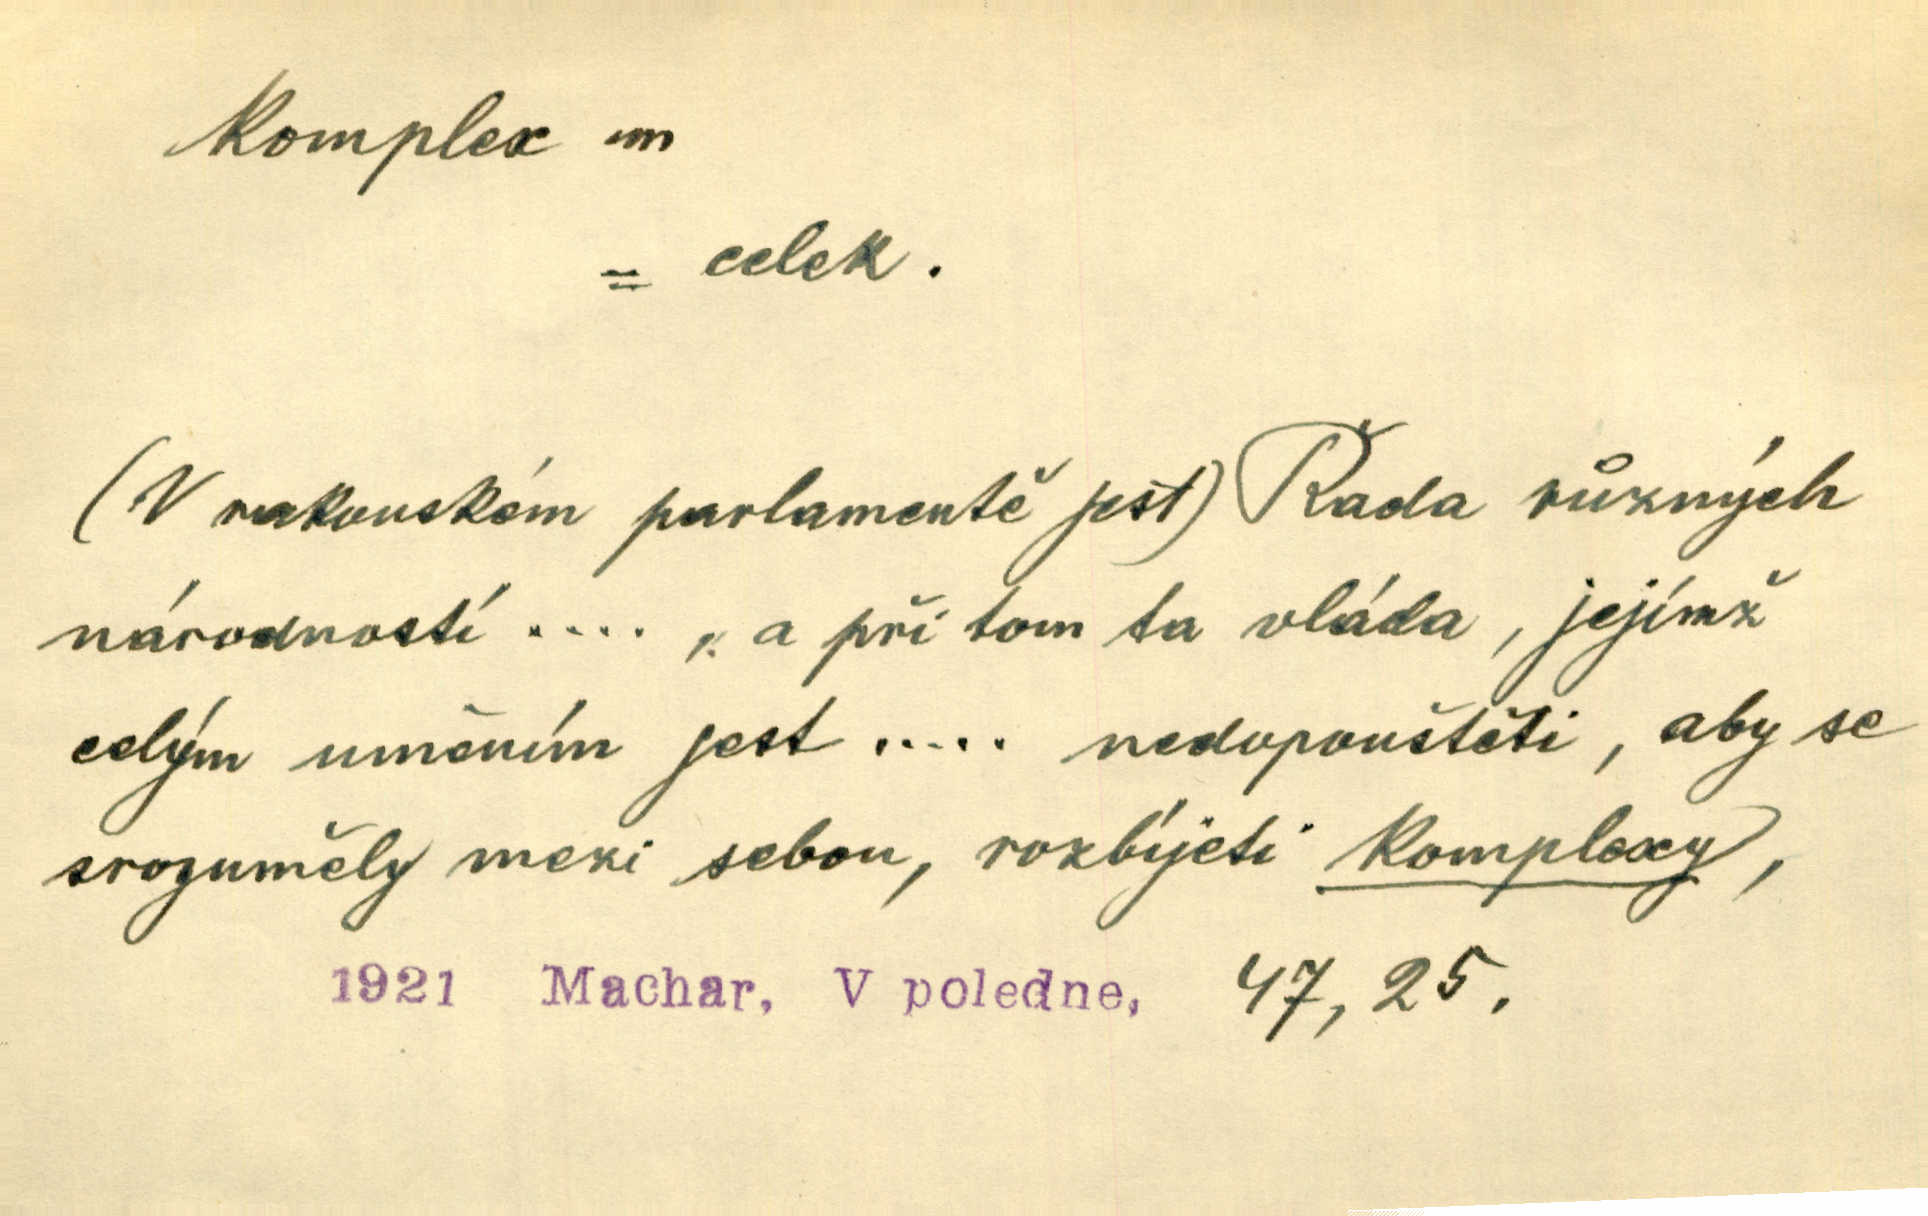 Komplex m
= celek.
(V rakouském parlamentě jest) Řada různých
národností .... , a při tom ta vláda, jejímž
celým uměním jest ..... nedopouštěti, aby se
srozuměly mezi sebou, rozbíjeti komplexy,
1921 Machar, V poledne, 47, 25.